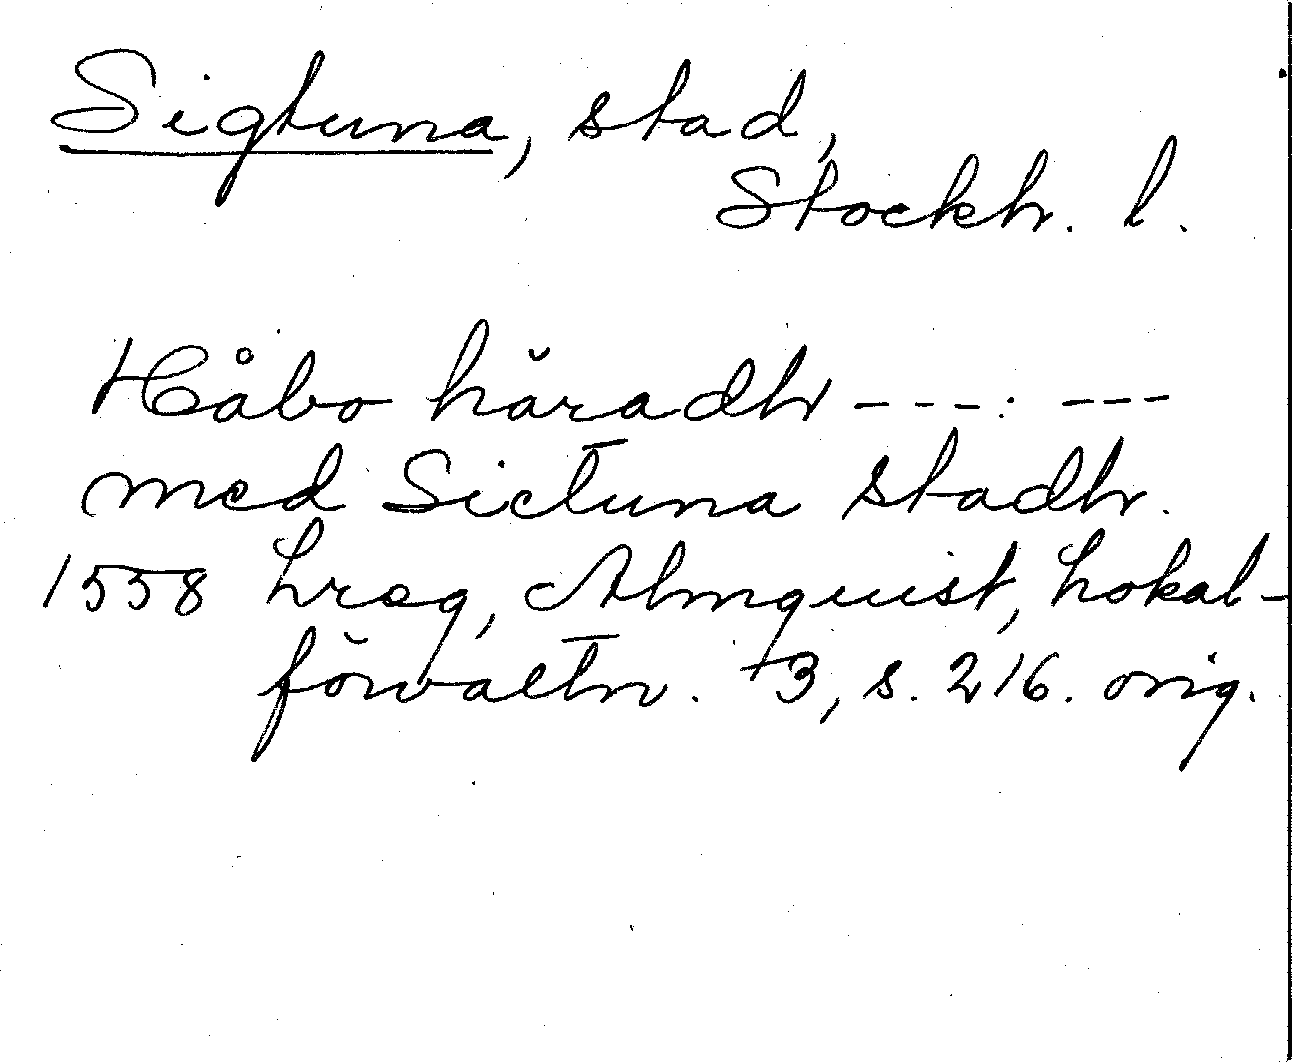 Sigtuna, stad,
Stockh. l.
Håbo häradh ---: ---
med Sictuna stadh.
1558 Lreg, Almquist, Lokal-
förvaltn. 3, s. 216. orig.